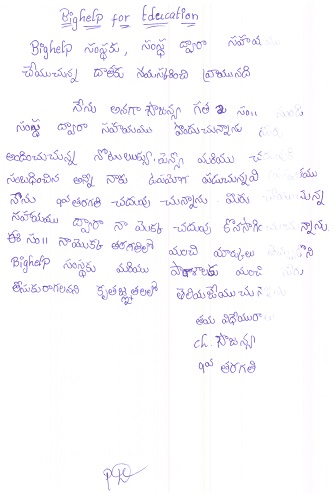 Bighelp for Education
Bighelp సంస్థకు, సంస్థ ద్వారా సహాయ
చేయుచున్న దాతకు నమస్కరించి వ్రాయునది
నేను అనగా సౌజన్య గత 2 సం॥ నుండి
సంస్థ ద్వారా సహాయము పొందుచున్నాను
అందించుచున్న నోటుబుక్స్, పెన్స్ మరియు
సంబధించిన అన్నీ నాకు ఉపయోగ పడుచున్నవి
నేను 9వ తరగతి చదువు చున్నాను. మీరు
సహాయము ద్వారా నా యొక్క చదువు కొనసాగి న్నాను.
ఈ సం॥ నాయొక్క తరగతిలో మంచి మార్కులు
Bighelp సంస్థకు మరియు పాఠశాలకు మంచి
తీసుకురాగలనని కృతజ్ఞతలతో తెలియజేయు
తమ విధేయురా
ch. సౌజన్య
9వ తరగతి